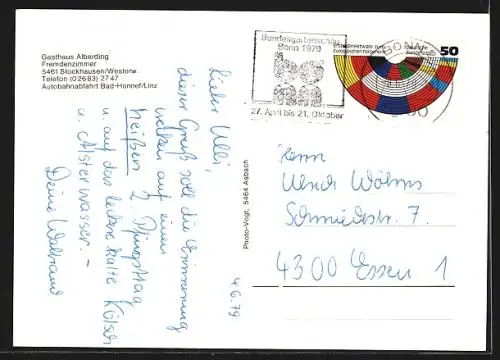 Gasthaus Alberding
Fremdenzimmer
5461 Stockhausen/Westerw.
Telefon (02683) 2747
Autobahnabfahrt Bad-Honnef/Linz
Lieber Ulli,
dieser Gruß soll die Erinnerung
wecken auf einen
heißen 2. Pfingsttag
u. auf das leckere kalte Kölsch
u. Alsterwasser. –
Deine Waltraud
4.6.79
Photo-Vogt, 5464 Asbach
Bundesgartenschau
Bonn 1979
27. April bis 21. Oktober
BONN
Direktwahl zum
Europäischen Parlament
Deutsche
Bundespost
50
Herrn
Ulrich Wöhms
Schmiedestr. 7.
4300 Essen 1